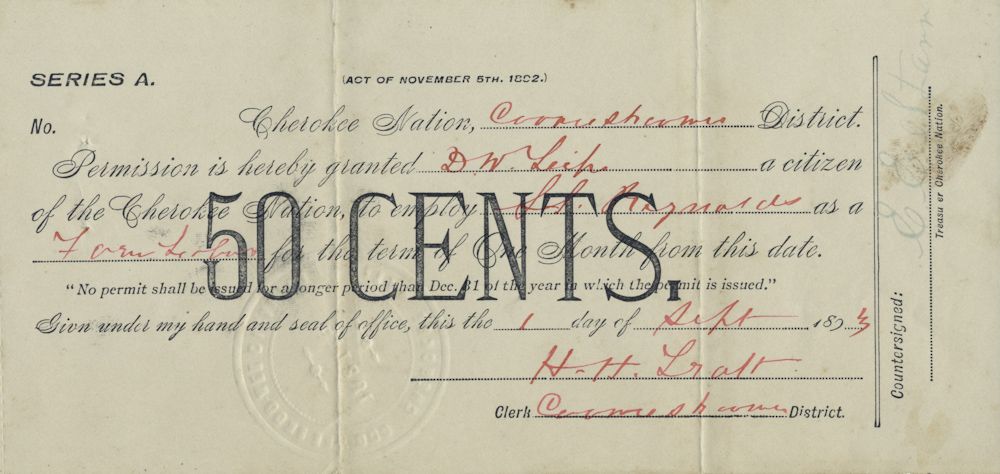 SERIES A.
(ACT OF NOVEMBER 5TH. 1892.)
No. Cherokee Nation, Cooweskoowee District.
Permission is hereby granted D W Lipe a citizen
of the Cherokee Nation, to employ Reynolds as a
Farm Labor for the term of One Month from this date.
50 CENTS.
"No permit shall be issued for a longer period than Dec. 31 of the year in which the permit is issued."
Givn under my hand and seal of office, this the 1 day of Sept 1893
H. H. Trott
Clerk Cooweskoowee District.
Countersigned:
E E Starr
Treasu er Cherokee Nation.